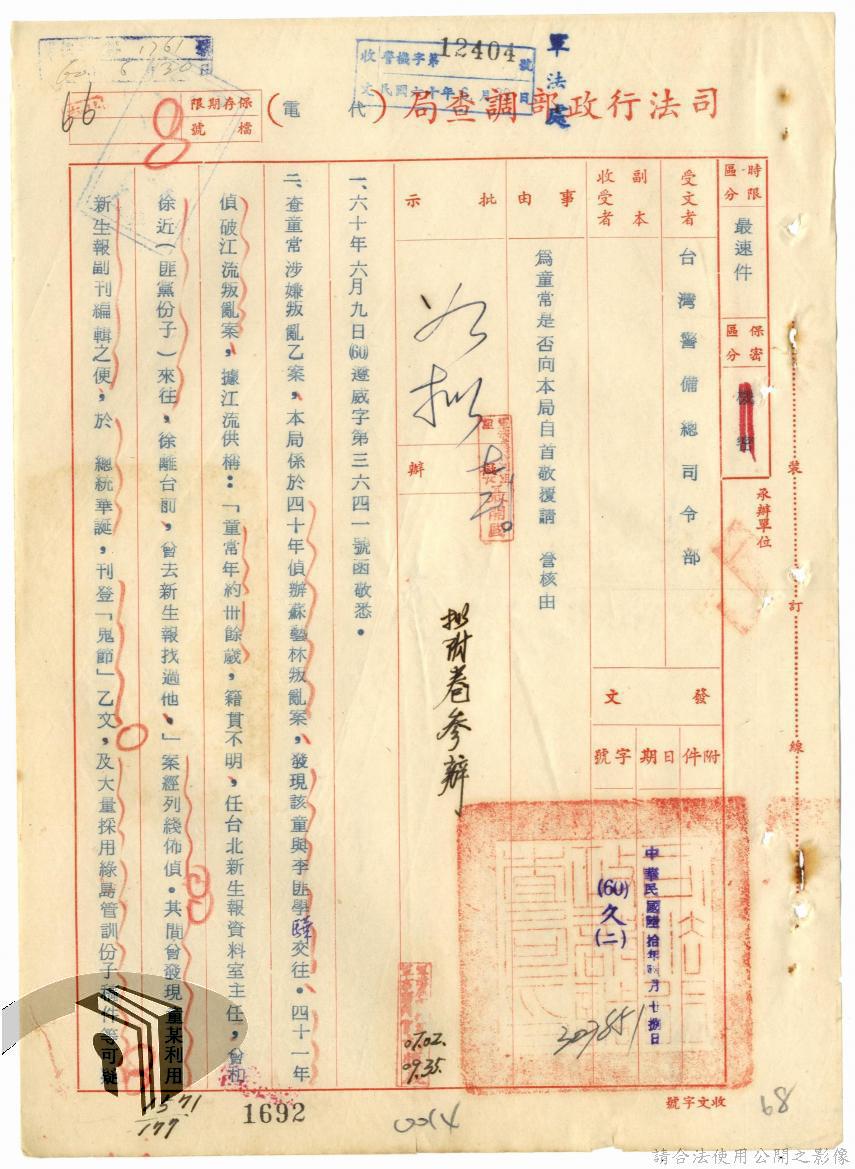 司法行政部調查局（代電）
軍法處
收文 警機字第12404號
1761
保存期限
檔號
66
8
時限區分 最速件
保密區分 機密
承辦單位
受文者 台灣警備總司令部
副本收受者
事由 為童常是否向本局自首敬覆請 詧核由
批示
擬辦
如擬
擬附卷參辦
發文
附件
日期 中華民國陸拾年 月十捌日
字號 (60)久(二)
307851
一、六十年六月九日(60)遵威字第三六四一號函敬悉。
二、查童常涉嫌叛亂乙案、本局係於四十年偵辦蘇藝林叛亂案、發現該童與李匪學驊交往。四十一年
偵破江流叛亂案、據江流供稱：「童常年約卅餘歲，籍貫不明、任台北新生報資料室主任，曾和
徐近（匪黨份子）來往，徐離台前，曾去新生報找過他。」案經列綫佈偵。其間曾發現童某利用
新生報副刊編輯之便，於 總統華誕，刊登「鬼節」乙文，及大量採用綠島管訓份子稿件等可疑
裝
訂
線
收文字號
07.02.
09.35
1692
0014
68
1571
177
請合法使用公開之影像